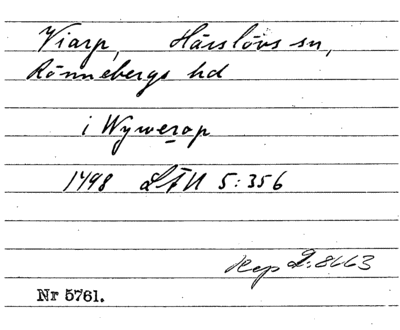 Viarp, Härslövs sn,
Rönnebergs hd
i Wywerop
1498 LÄU 5:356
Rep 2:8663
Nr 5761.